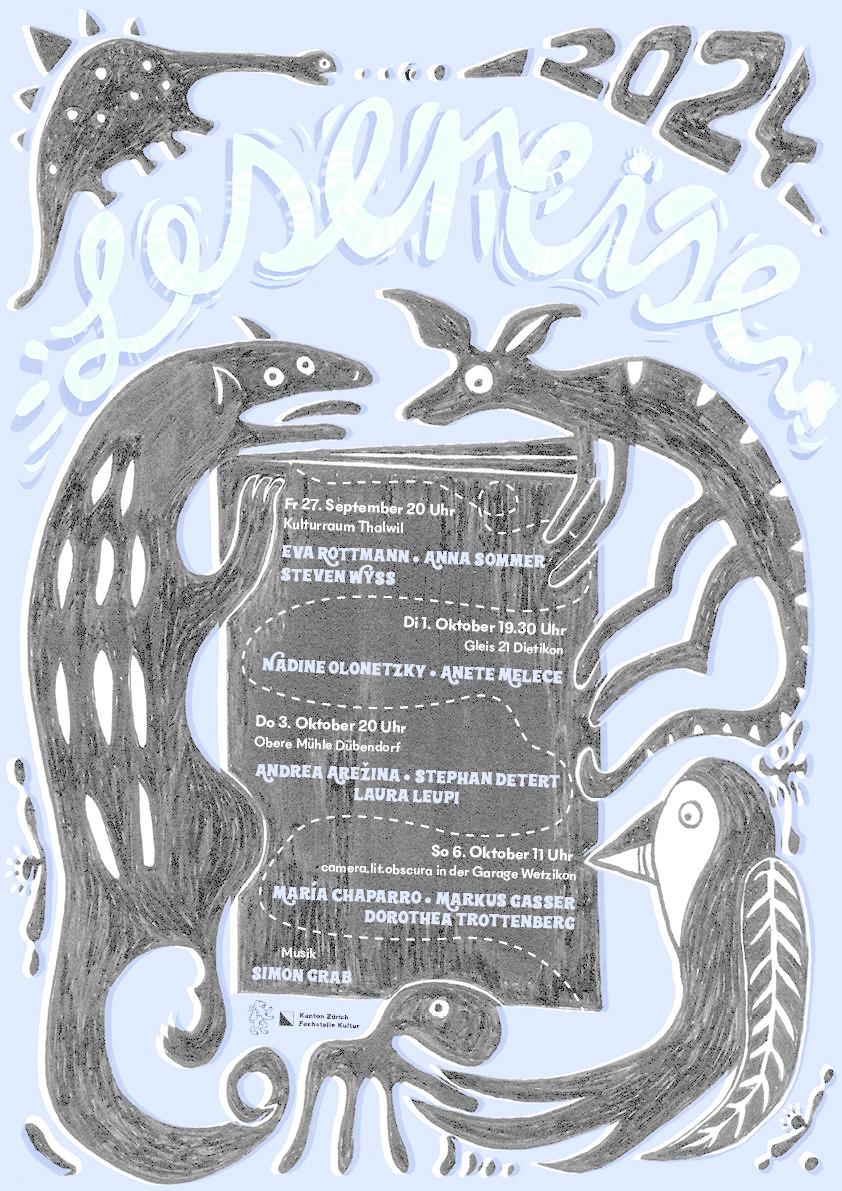 2024
Lesereise
Fr 27. September 20 Uhr
Kulturraum Thalwil
EVA ROTTMANN • ANNA SOMMER
STEVEN WYSS
Di 1. Oktober 19.30 Uhr
Gleis 21 Dietikon
NADINE OLONETZKY • ANETE MELECE
Do 3. Oktober 20 Uhr
Obere Mühle Dübendorf
ANDREA AREŽINA • STEPHAN DETERT
LAURA LEUPI
So 6. Oktober 11 Uhr
camera.lit.obscura in der Garage Wetzikon
MARÍA CHAPARRO • MARKUS GASSER
DOROTHEA TROTTENBERG
Musik
SIMON GRAB
Kanton Zürich
Fachstelle Kultur